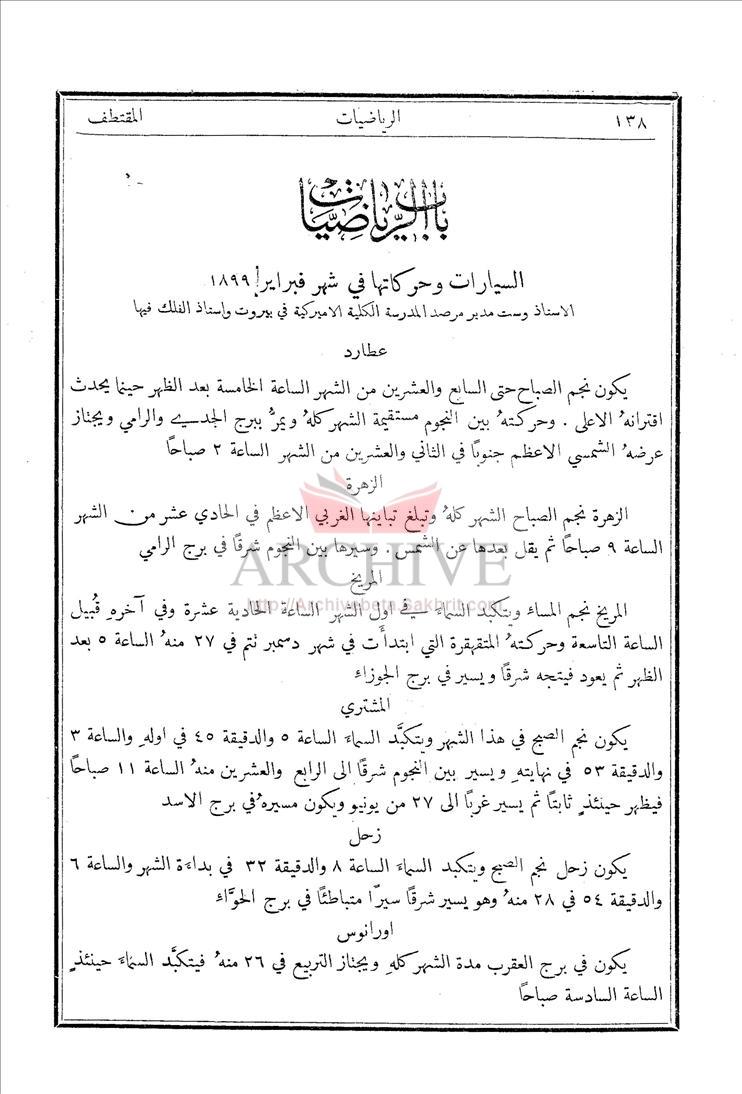 ١٣٨ الرياضيات المقتطف
باب الرياضيات
السيارات وحركاتها في شهر فبراير ١٨٩٩
الاستاذ وست مدير مرصد المدرسة الكلية الاميركية في بيروت واستاذ الفلك فيها
عطارد
يكون نجم الصباح حتى السابع والعشرين من الشهر الساعة الخامسة بعد الظهر حينما يحدث
اقترانهُ الاعلى . وحركتهُ بين النجوم مستقيمة الشهر كلهُ ويمرُّ ببرج الجدي والرامي ويجتاز
عرضهُ الشمسي الاعظم جنوبًا في الثاني والعشرين من الشهر الساعة ٢ صباحًا
الزهرة
الزهرة نجم الصباح الشهر كلهُ وتبلغ تباينها الغربي الاعظم في الحادي عشر من الشهر
الساعة ٩ صباحًا ثم يقل بعدها عن الشمس . وسيرها بين النجوم شرقًا في برج الرامي
المريخ
المريخ نجم المساء ويتكبد السماء في اول الشهر الساعة الحادية عشرة وفي آخرهِ قُبيل
الساعة التاسعة وحركتهُ المتقهقرة التي ابتدأَت في شهر دسمبر تتم في ٢٧ منهُ الساعة ٥ بعد
الظهر ثم يعود فيتجه شرقًا ويسير في برج الجوزاء
المشتري
يكون نجم الصبح في هذا الشهر ويتكبَّد السماء الساعة ٥ والدقيقة ٤٥ في اولهِ والساعة ٣
والدقيقة ٥٣ في نهايتهِ ويسير بين النجوم شرقًا الى الرابع والعشرين منهُ الساعة ١١ صباحًا
فيظهر حينئذٍ ثابتًا ثم يسير غربًا الى ٢٧ من يونيو ويكون مسيرهُ في برج الاسد
زحل
يكون زحل نجم الصبح ويتكبد السماء الساعة ٨ والدقيقة ٣٢ في بداءة الشهر والساعة ٦
والدقيقة ٥٤ في ٢٨ منهُ وهو يسير شرقًا سيرًا متباطئًا في برج الحوَّاء
اورانوس
يكون في برج العقرب مدة الشهر كلهِ ويجتاز التربيع في ٢٦ منهُ فيتكبَّد السماء حينئذٍ
الساعة السادسة صباحًا
ARCHIVE
http://Archivebeta.Sakhrit.com